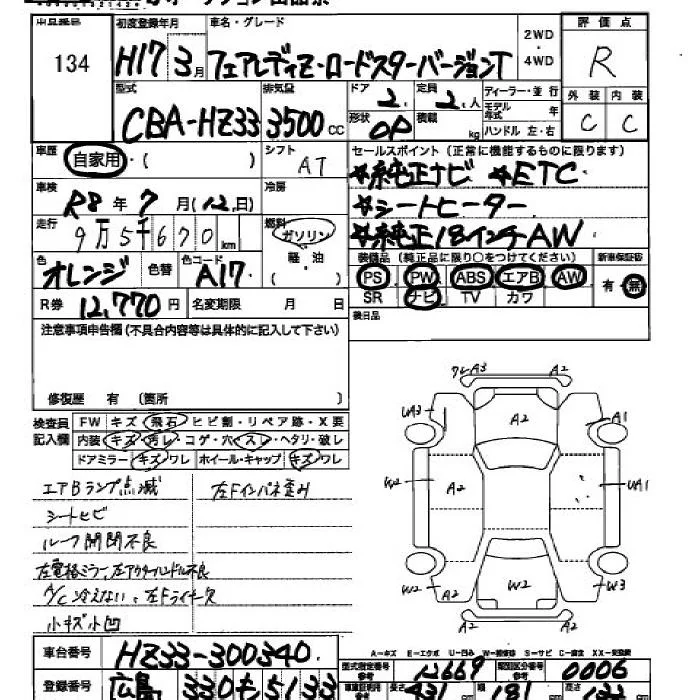 出品番号 初度登録年月 車名・グレード 2WD・4WD 評価点
134 H17 3月 フェアレディZ・ロードスターバージョンT R
型式 排気量 ドア 2 定員 2人 ディーラー・並行 外装 内装
CBA-HZ33 3500cc 形状 OP 積載 kg モデル年式 年 C C
ハンドル 左・右
車歴 自家用・( ) シフト AT セールスポイント (正常に機能するものに限ります)
☆純正ナビ ☆ETC
車検 R8年7月(12日) 冷房 ☆シートヒーター
走行 9万5千670km 燃料 ガソリン・軽油 ☆純正18インチAW
色 オレンジ 色替 色コード A17 装備品 (純正品に限り○をつけてください) 新車保証書
PS PW ABS エアB AW 有・無
SR ナビ TV カワ
R券 12,770円 名変期限 月 日 後日品
注意事項申告欄(不具合内容等は具体的に記入して下さい)
修復歴 有 〔箇所 〕
検査員記入欄 FW キズ・飛石・ヒビ割・リペア跡・X要
内装・キズ・汚レ・コゲ・穴・スレ・ヘタリ・破レ
ドアミラー・キズ・ワレ ホイール・キャップ・キズ・ワレ
エアBランプ点滅 左Fインパネ歪み
シートヒビ
ルーフ開閉不良
左電格ミラー、左アウターハンドル不良
A/C冷えない、左Fライナー欠
小キズ小凹
ワレA3 A2
UA3 A2 A1
W2 A2 UA1
W2 A2 W2 W3
A2
A-キズ E-エクボ U-凹み W-補修跡 S-サビ C-腐食 XX-交換済
車台番号 HZ33-300340 型式指定番号 参考 12669 類別区分番号 参考 0006
登録番号 広島 330 も 5133 長さ 431 幅 181